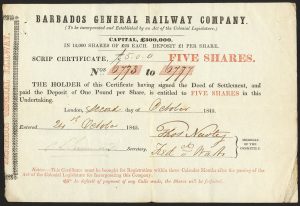 BARBADOS GENERAL RAILWAY COMPANY.
(To be Incorporated and Established by an Act of the Colonial Legislature.)
CAPITAL, £500,000,
IN SHARES OF EACH. DEPOSIT £1 PER SHARE.
SCRIP CERTIFICATE, £500 FIVE SHARES.
Nos 6773 to 6777
THE HOLDER of this Certificate having signed the Deed of Settlement, and
paid the Deposit of One Pound per Share, is entitled to FIVE SHARES in this
Undertaking.
London, second day of October 1845.
Entered 24th October 1845.
Secretary.
Fred Watts
MEMBERS
OF THE
COMMITTEE
NOTE:—This Certificate must be brought for Registration within three Calendar Months after the passing of
the Act of the Colonial Legislature for Incorporating the Company.
In default of payment of any Calls made, the Shares will be forfeited.